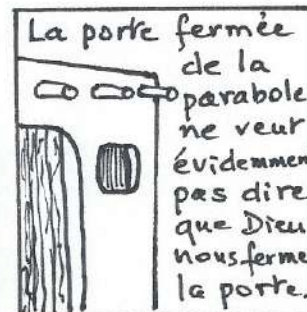 La porte fermée
de la
parabole
ne veut
évidemment
pas dire
que Dieu
nous ferme
la porte.